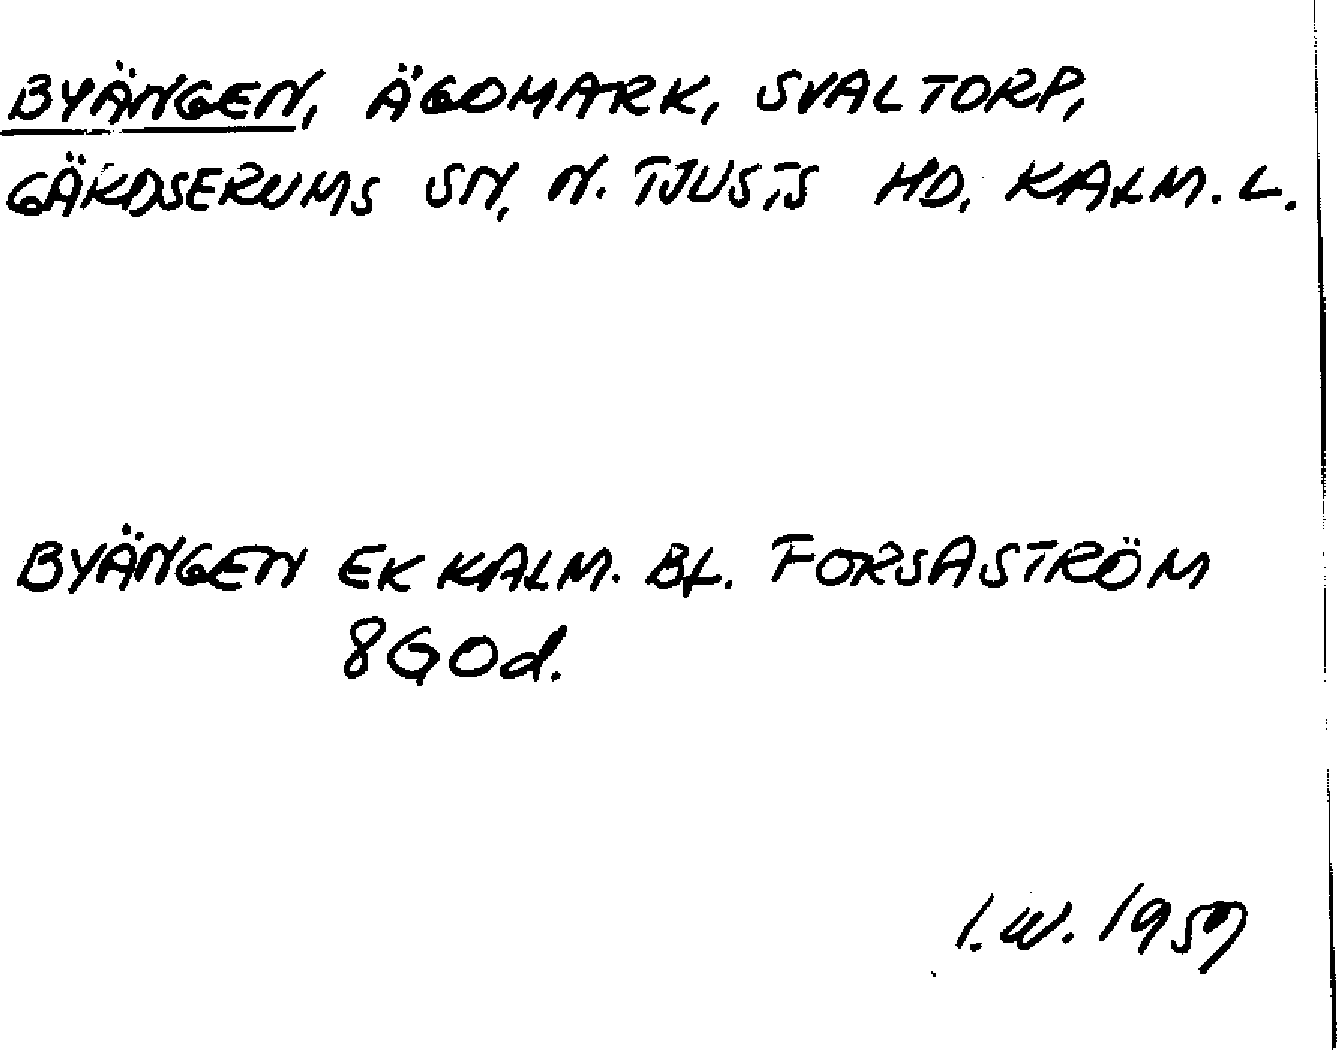 BYÄNGEN, ÄGOMARK, SVALTORP,
GÄRDSERUMS SN, N. TJUSTS HD, KALM. L.
BYÄNGEN EK KALM. BL. FORSASTRÖM
8G0d.
I.W. 1957